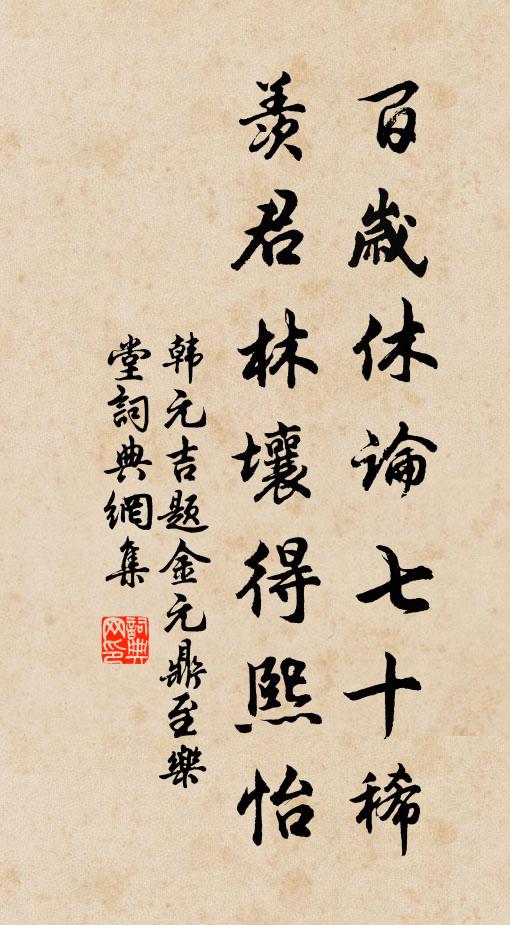 百歲休論七十稀
羨君林壤得熙怡
韓元吉題金元鼎至樂
堂詞典網集
詞典网印